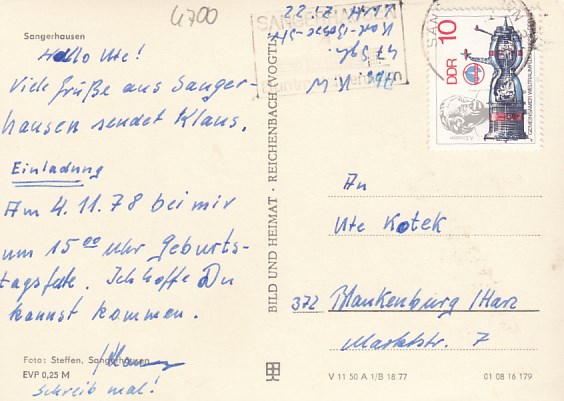 4700
Sangerhausen
Hallo Ute!
Viele Grüße aus Sanger-
hausen sendet Klaus.
Einladung
Am 4.11.78 bei mir
um 15 00 Uhr Geburts-
tagsfete. Ich hoffe Du
kannst kommen.
Klaus
Foto: Steffen, Sangerhausen
EVP 0,25 M
Schreib mal!
BILD UND HEIMAT · REICHENBACH (VOGTL)
Abs. K. W
47 Sgh.
DDR 10
An
Ute Kotek
372 Blankenburg/Harz
Marktstr. 7
V 11 50 A 1/B 18 77
01 08 16 179